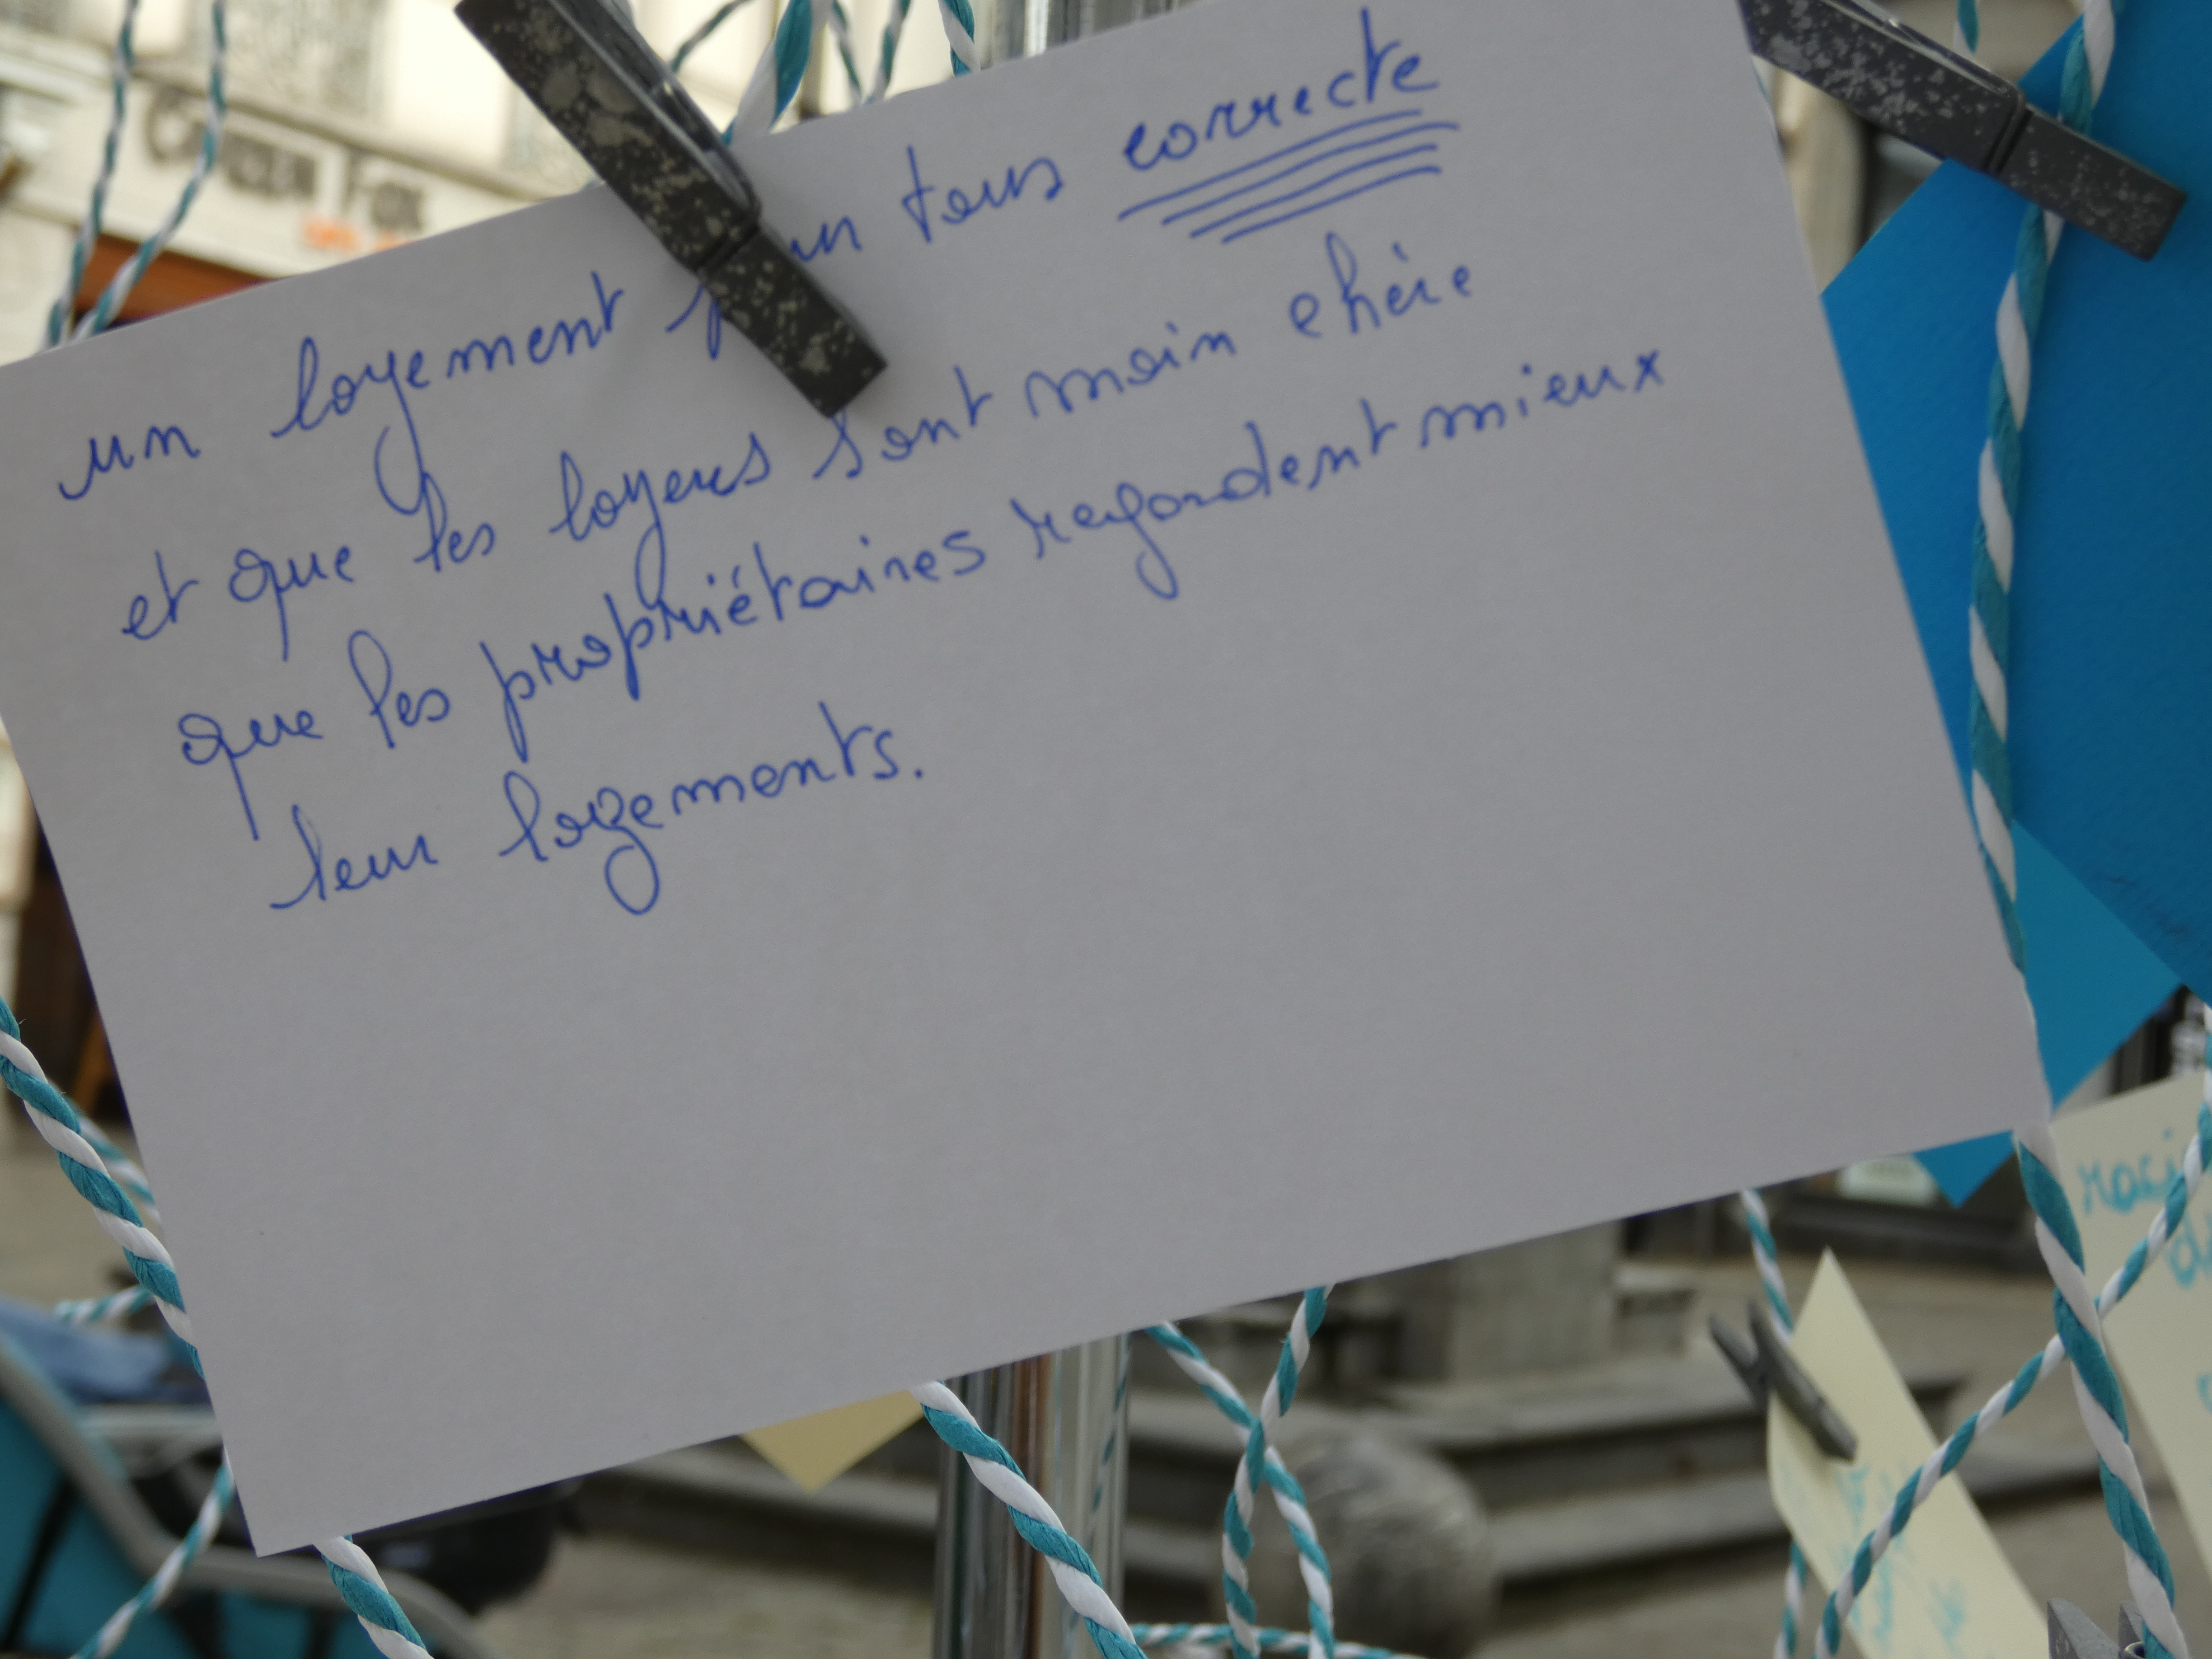 un logement pour tous correcte
et que les loyers sont moin chère
que les propriétaires regardent mieux
leur logements.